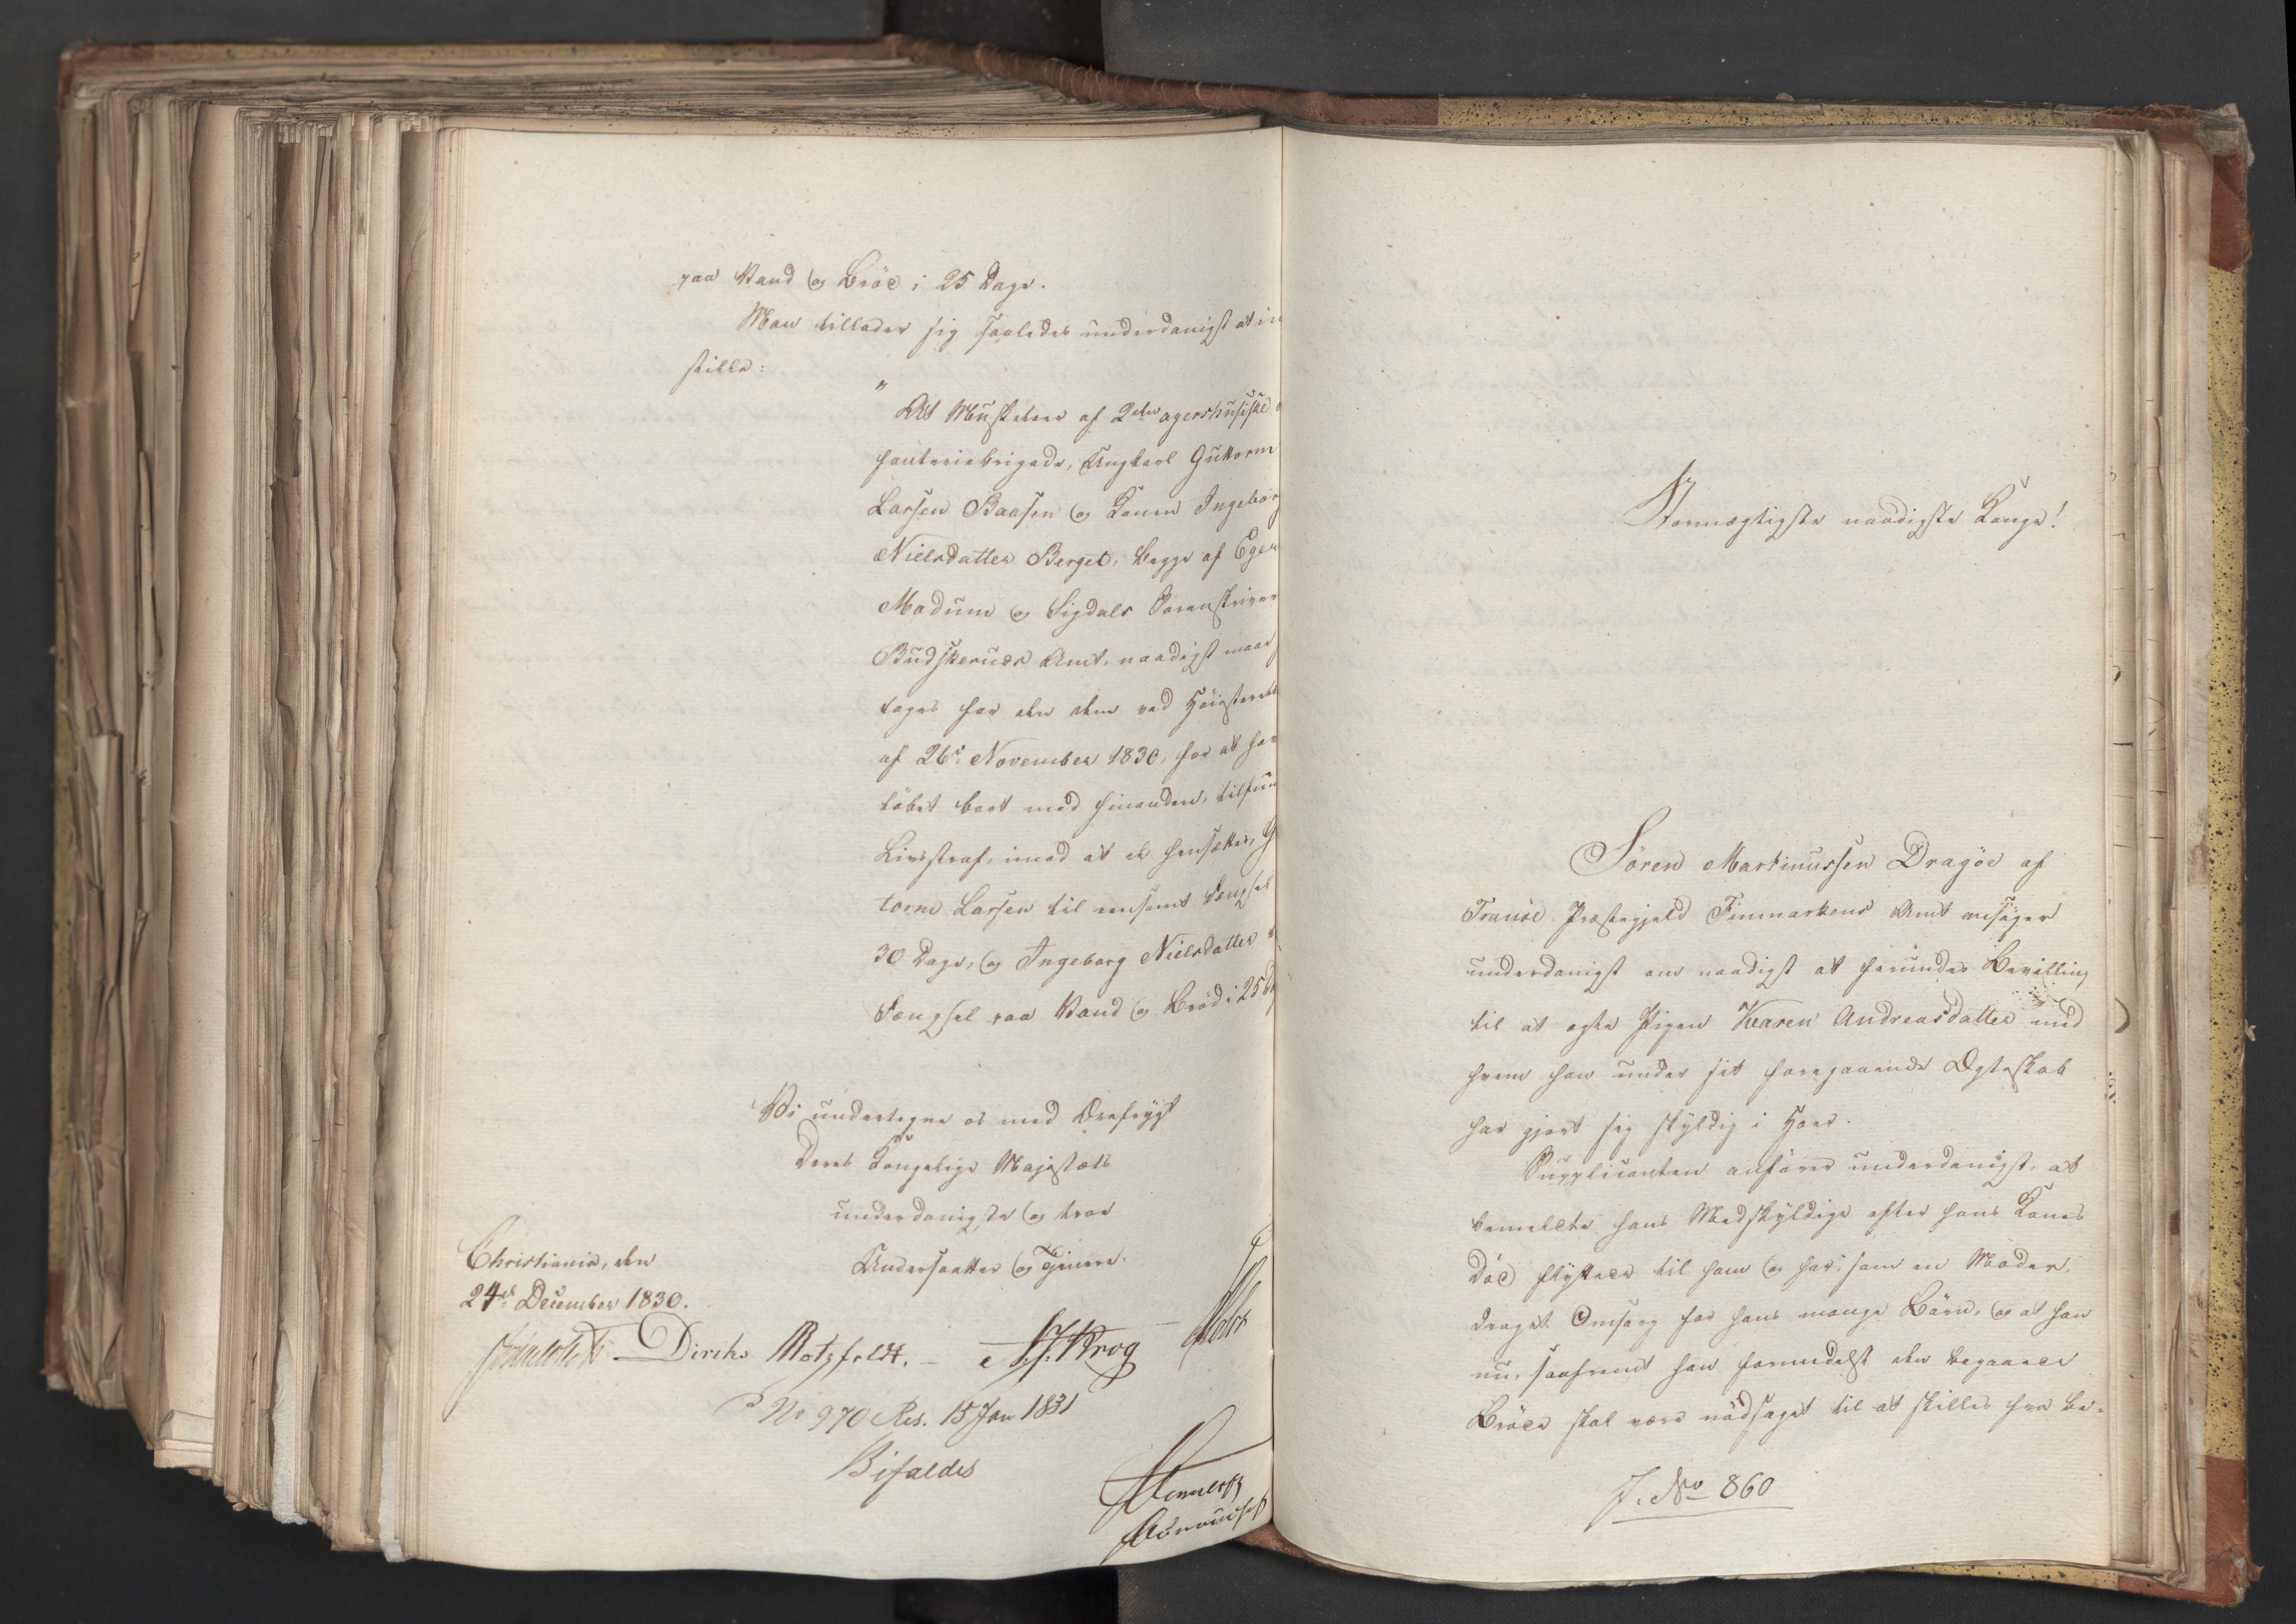 paa Vand og Brød i 25 Dage.
Man tillader sig saaledes underdanigst at in
stille:
"At Musketeer af 2den agershusiske
fanteriebrigade, Ungkarl Guttorm
Larsen Baasen og Konen Ingeborg
Nielsdatter Berget, begge af Eger
Modums og Sigdals Sorenskriver
Budskeruds Amt, naadigst maae
tages for den dem ved Høiesterets
af 26de November 1830, for at have
løbet bort med hinanden, tilfun
Livsstraf, imod at de hensættes, G
torm Larsen til eensomt Fængsel
30 Dage, og Ingeborg Nielsdatter
Fængsel paa Vand og Brød i 25 D
Vi undertegne os med Ærefrygt
Deres Kongelige Majestæts
underdanigste og troe
Undersaatter og Tjenere.
Christiania, den
24de December 1830.
Diriks Motzfeldt. Krog
No 970 Res. 15 Jan 1831
Bifaldes
Stormægtigste naadigste Konge!
Sören Martinussen Dragöe af
Tranöe Præstegjeld Finmarkens Amt ansöger
underdanigst om naadigst at forundes Bevilling
til at ægte Pigen Karen Andreasdatter med
hvem han under sit foregaaende Ægteskab
har gjort sig skyldig i Hoer.
Supplicanten anförer underdanigst, at
bemeldte hans Medskyldige efter hans Kones
Död flyttede til ham og har, som en Moder,
draget Omsorg for hans mange Börn, og at han
nu, saafremt han formedelst den begaaede
Bröde skal være nödsaget til at skilles fra be-
J. No 860